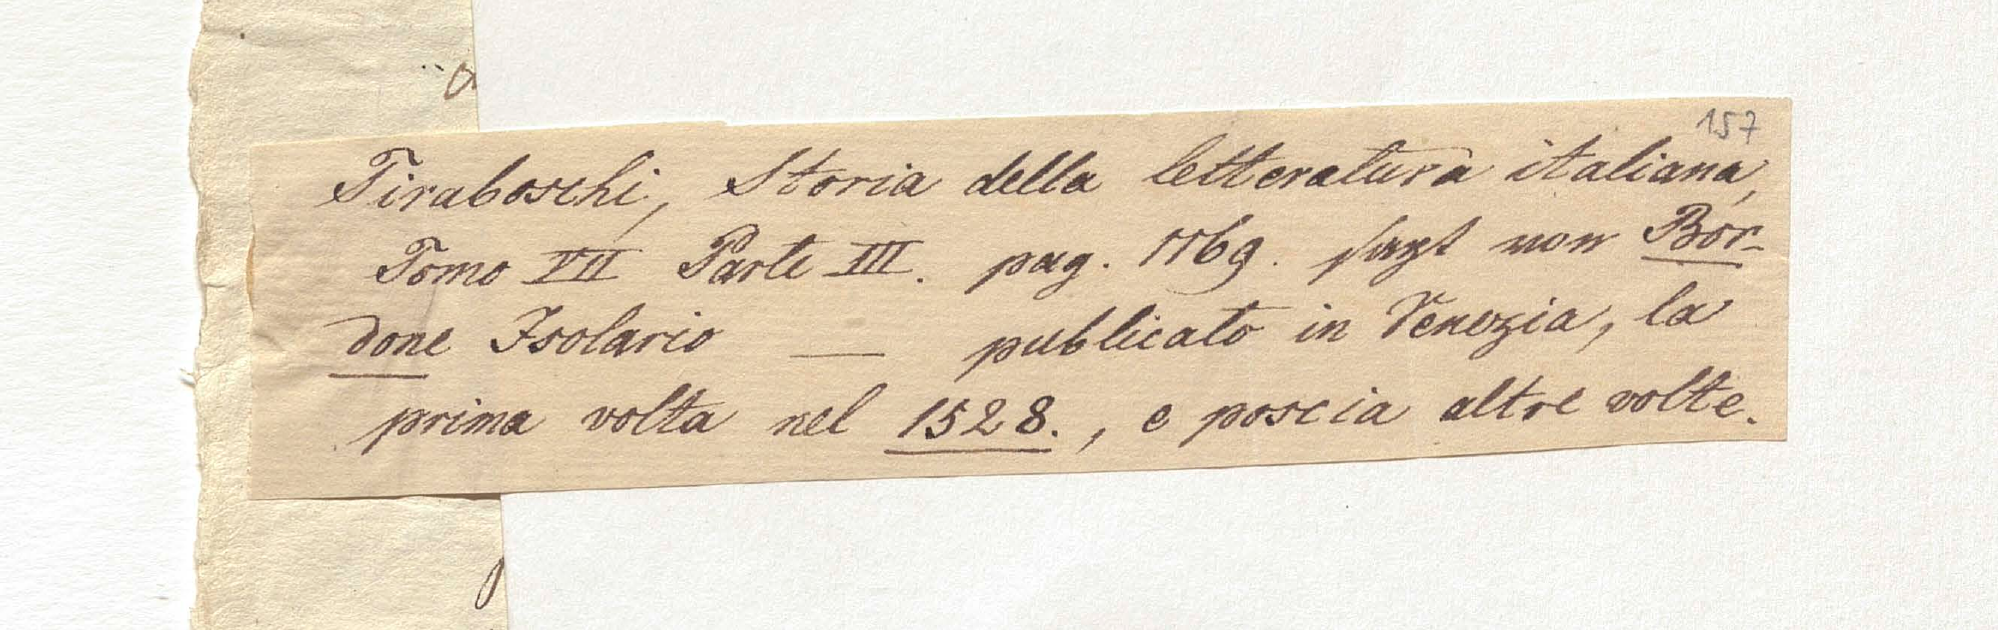 157
Tiraboschi, Storia della letteratura italiana,
Tomo VII Parte III. pag. 1169. sagt von Bor-
done Isolario — publicato in Venezia, la
prima volta nel 1528., e poscia altre volte.